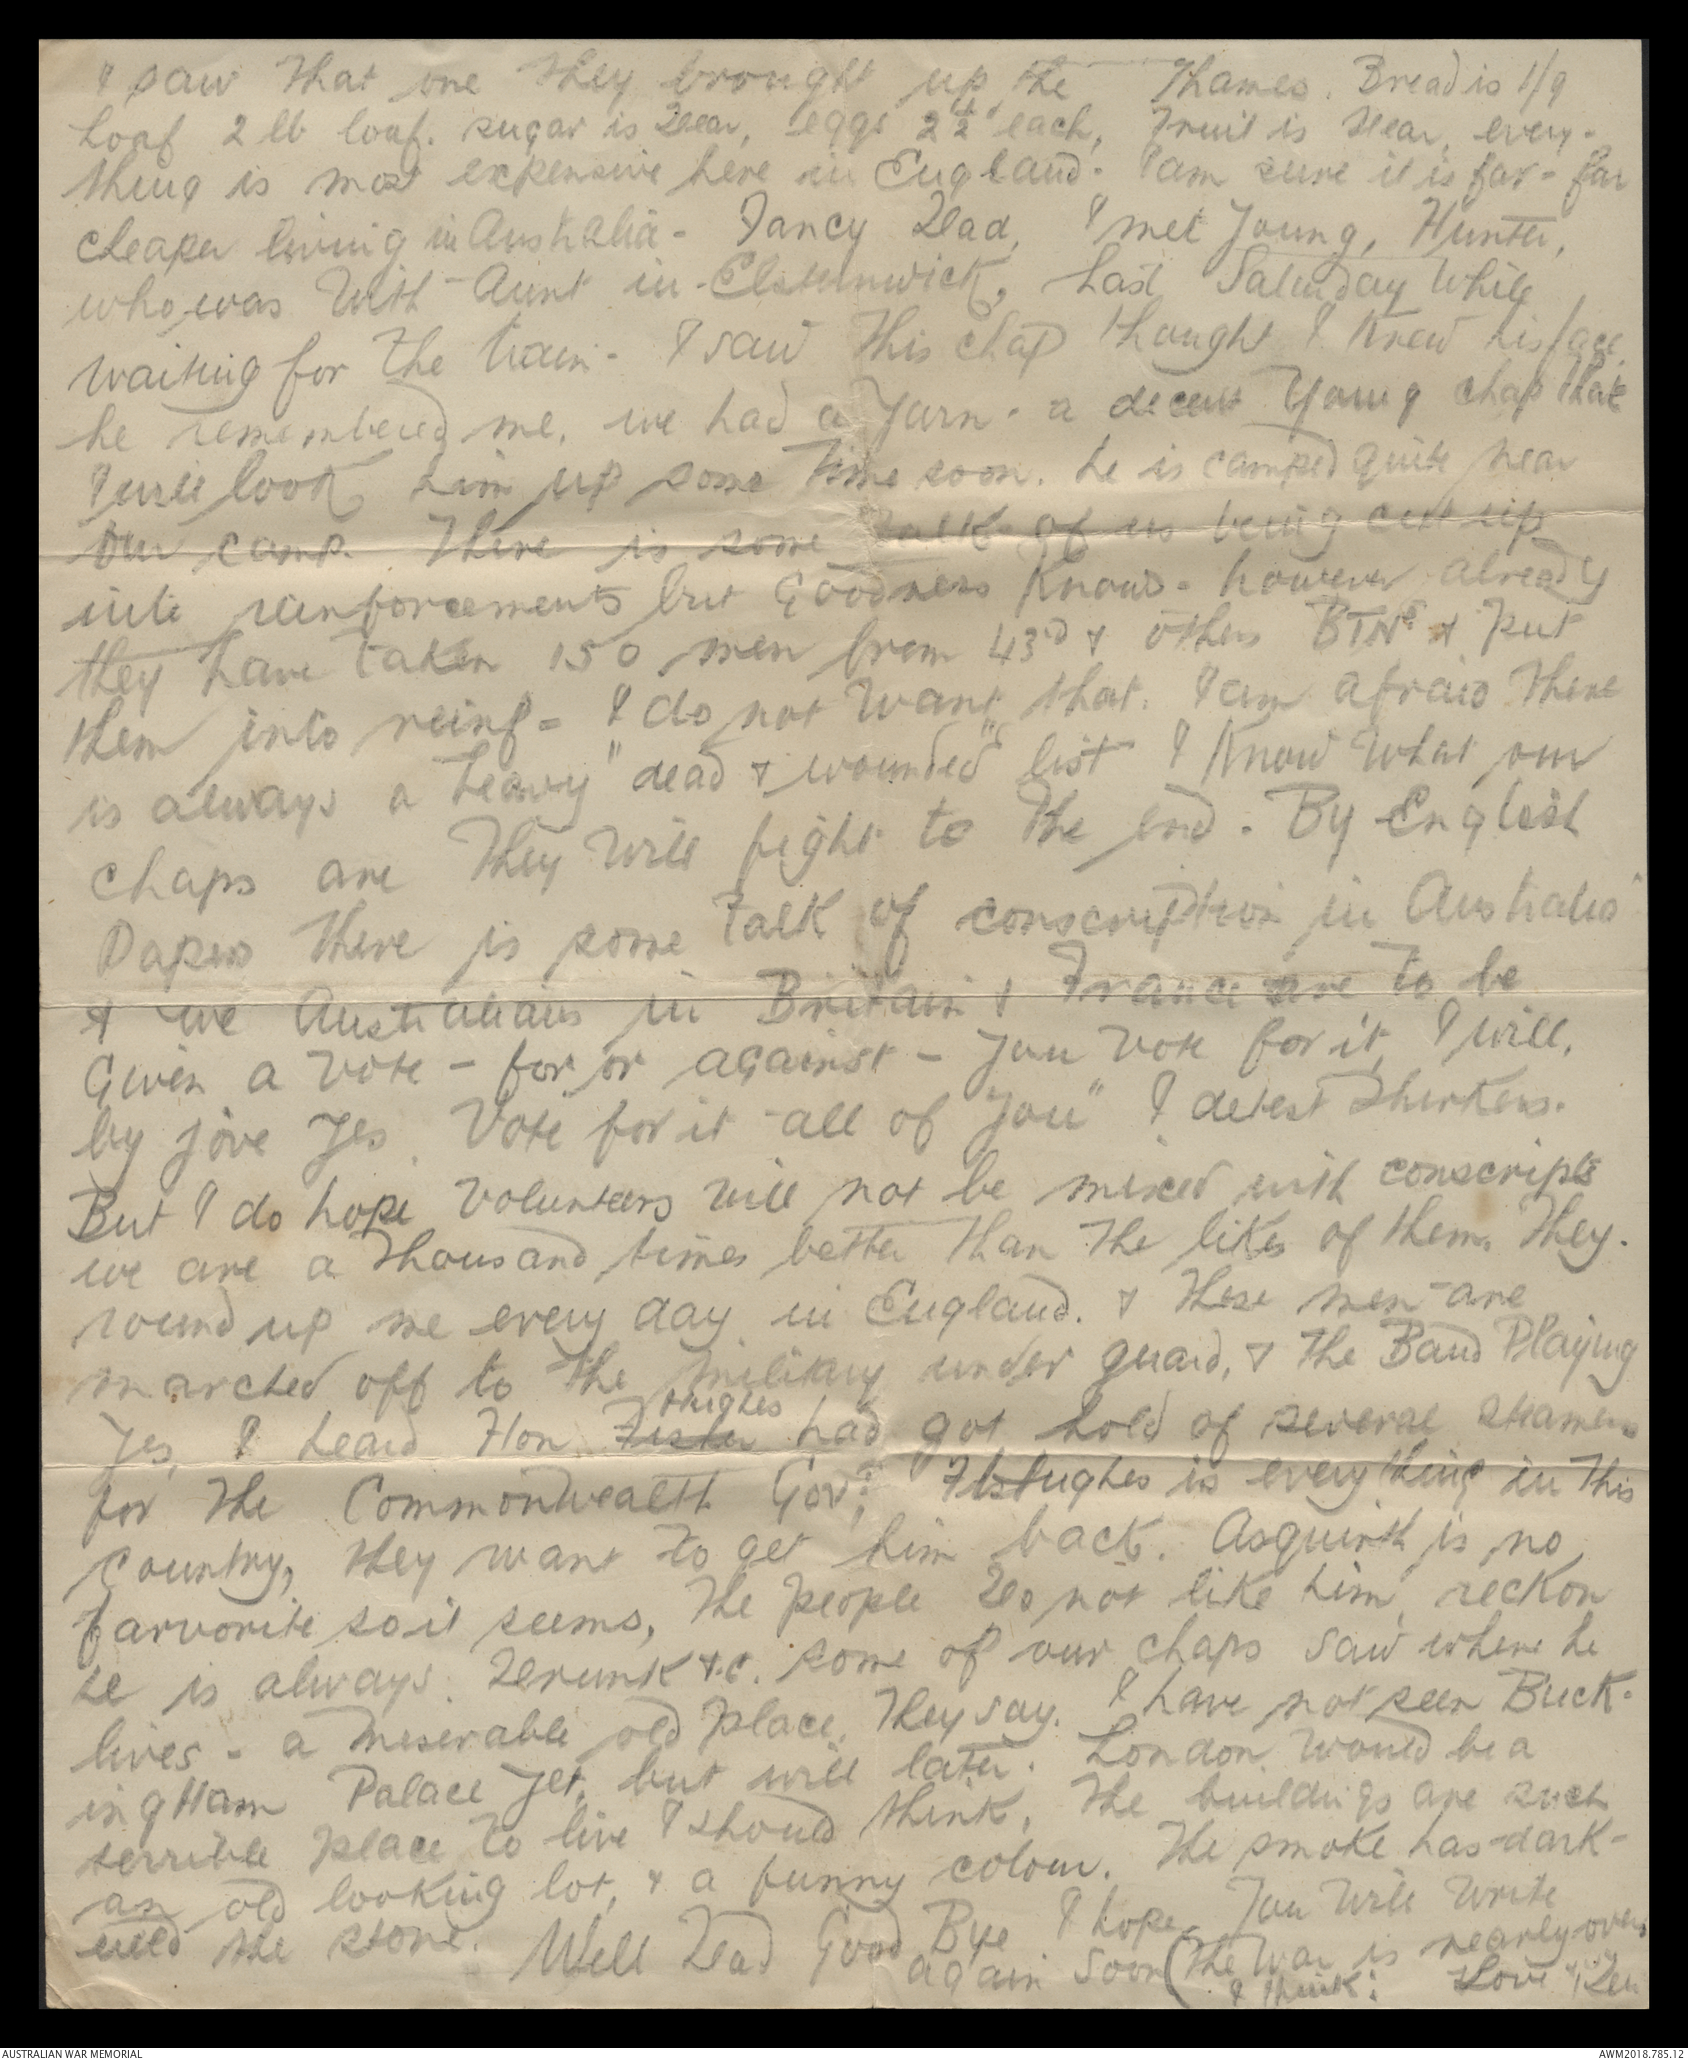 I saw that one they brought up the Thames. Bread is 1/9
Loaf 2 lb loaf. sugar is Dear, eggs 2½d each, Fruit is Dear, every-
thing is most expensive here in England. I am sure it is far - far
cheaper living in Australia - Fancy Dad, I met Young, Hunter,
who was with Aunt in Elsternwick, Last Saturday while
waiting for the train - I saw this chap thought I knew his face,
he remembered me, we had a yarn - a decent young chap that
I will look him up some time soon. he is camped quite near
our camp. There is some talk of us being cut up
into reinforcements but Goodness Knows - however already
they have taken 150 men from 43rd & others BTNs & put
them into reinf = I do not want that. I am afraid there
is always a heavy "dead & wounded" list I Know what our
chaps are They will fight to the end. By English
Papers there is some talk of conscription in Australia
& we Australians in Britain & France are to be
Given a vote - for or against - you vote for it, I will,
by jove yes. Vote for it all of "you" I detest shirkers.
But I do hope volunteers will not be mixed with conscripts
we are a thousand times better than the likes of them. They.
round up me every day in England. & these men are
marched off to the military under guard, & the Band Playing
Yes, I heard Hon Fisher Hughes had got hold of several steamers
for the Commonwealth Govt; Hughes is everything in this
country, they want to get him back. Asquith is no
farvorite so it seems, the people Do not like him, reckon
he is always. Drunk &.c. some of our chaps saw where he
lives - a meserable old place. They say. I have not seen Buck-
ingHam Palace yet, but will later. London. would be a
terrible place to live I should think, The buildings are such
an old looking lot, & a funny colour. The smoke has dark-
ened the stone. Well Dad Good Bye I hope You Will Write
again soon (The War is nearly over
I think: Love
AUSTRALIAN WAR MEMORIAL
AWM2018.785.12